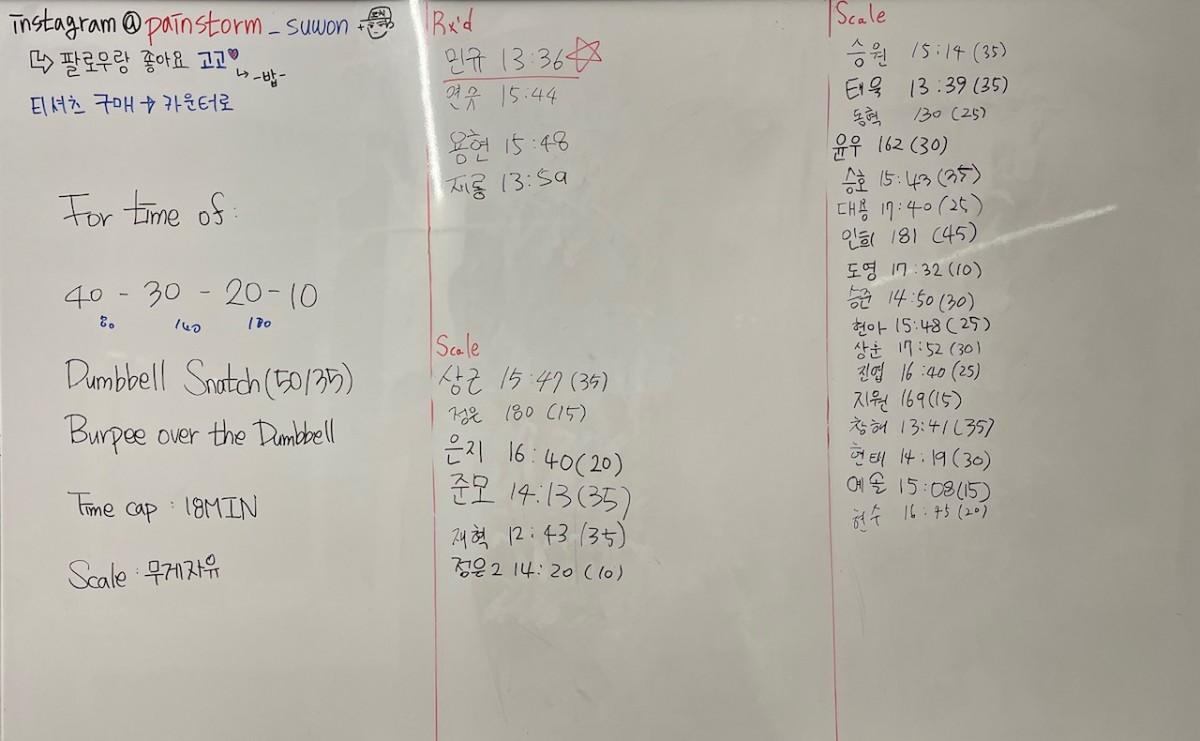 instagram@painstorm_suwon
팔로우랑 좋아요 고고
-밥-
티셔츠 구매 → 카운터로
For time of:
40 - 30 - 20 - 10
80 140 180
Dumbbell Snatch(50/35)
Burpee over the Dumbbell
Time cap : 18MIN
Scale : 무게자유
Rx'd
민규 13:36
15:44
용현 15:48
재룡 13:59
Scale
상근 15:47(35)
정은 180 (15)
은지 16:40(20)
준모 14:13(35)
재혁 12:43(35)
정은2 14:20(10)
Scale
승원 15:14(35)
태욱 13:39(35)
동혁 130(25)
윤우 162(30)
승호 15:43(35)
대용 17:40(25)
인희 181 (45)
도영 17:32(10)
승준 14:50(30)
현아 15:48(25)
상훈 17:52(30)
진엽 16:40(25)
지원 169(15)
창혜 13:41(35)
현태 14:19(30)
예솔 15:08(15)
현수 16:45(20)